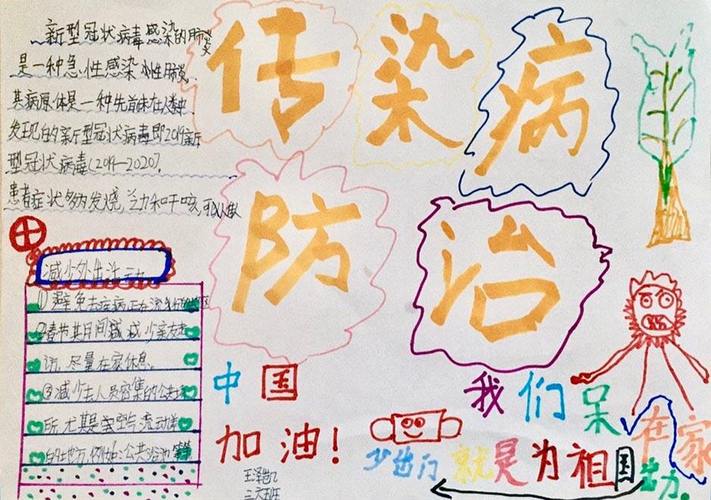 新型冠状病毒感染的肺炎
是一种急性感染性肺炎,
其病原体是一种先前未在人类中
发现的新型冠状病毒即2019新
型冠状病毒(2019-2020).
患者症状多为发烧,乏力和干咳,
传染病
防治
减少外出活动
①避免去疾病正在流行的地区
②春节其日间减 减少亲友
访,尽量在家休息.
③减少去人员密集的公共场
所尤其是空气流动
的地方例如:公共浴池
中国
加油!
我们呆
在家
少出门 就是为祖国
王泽